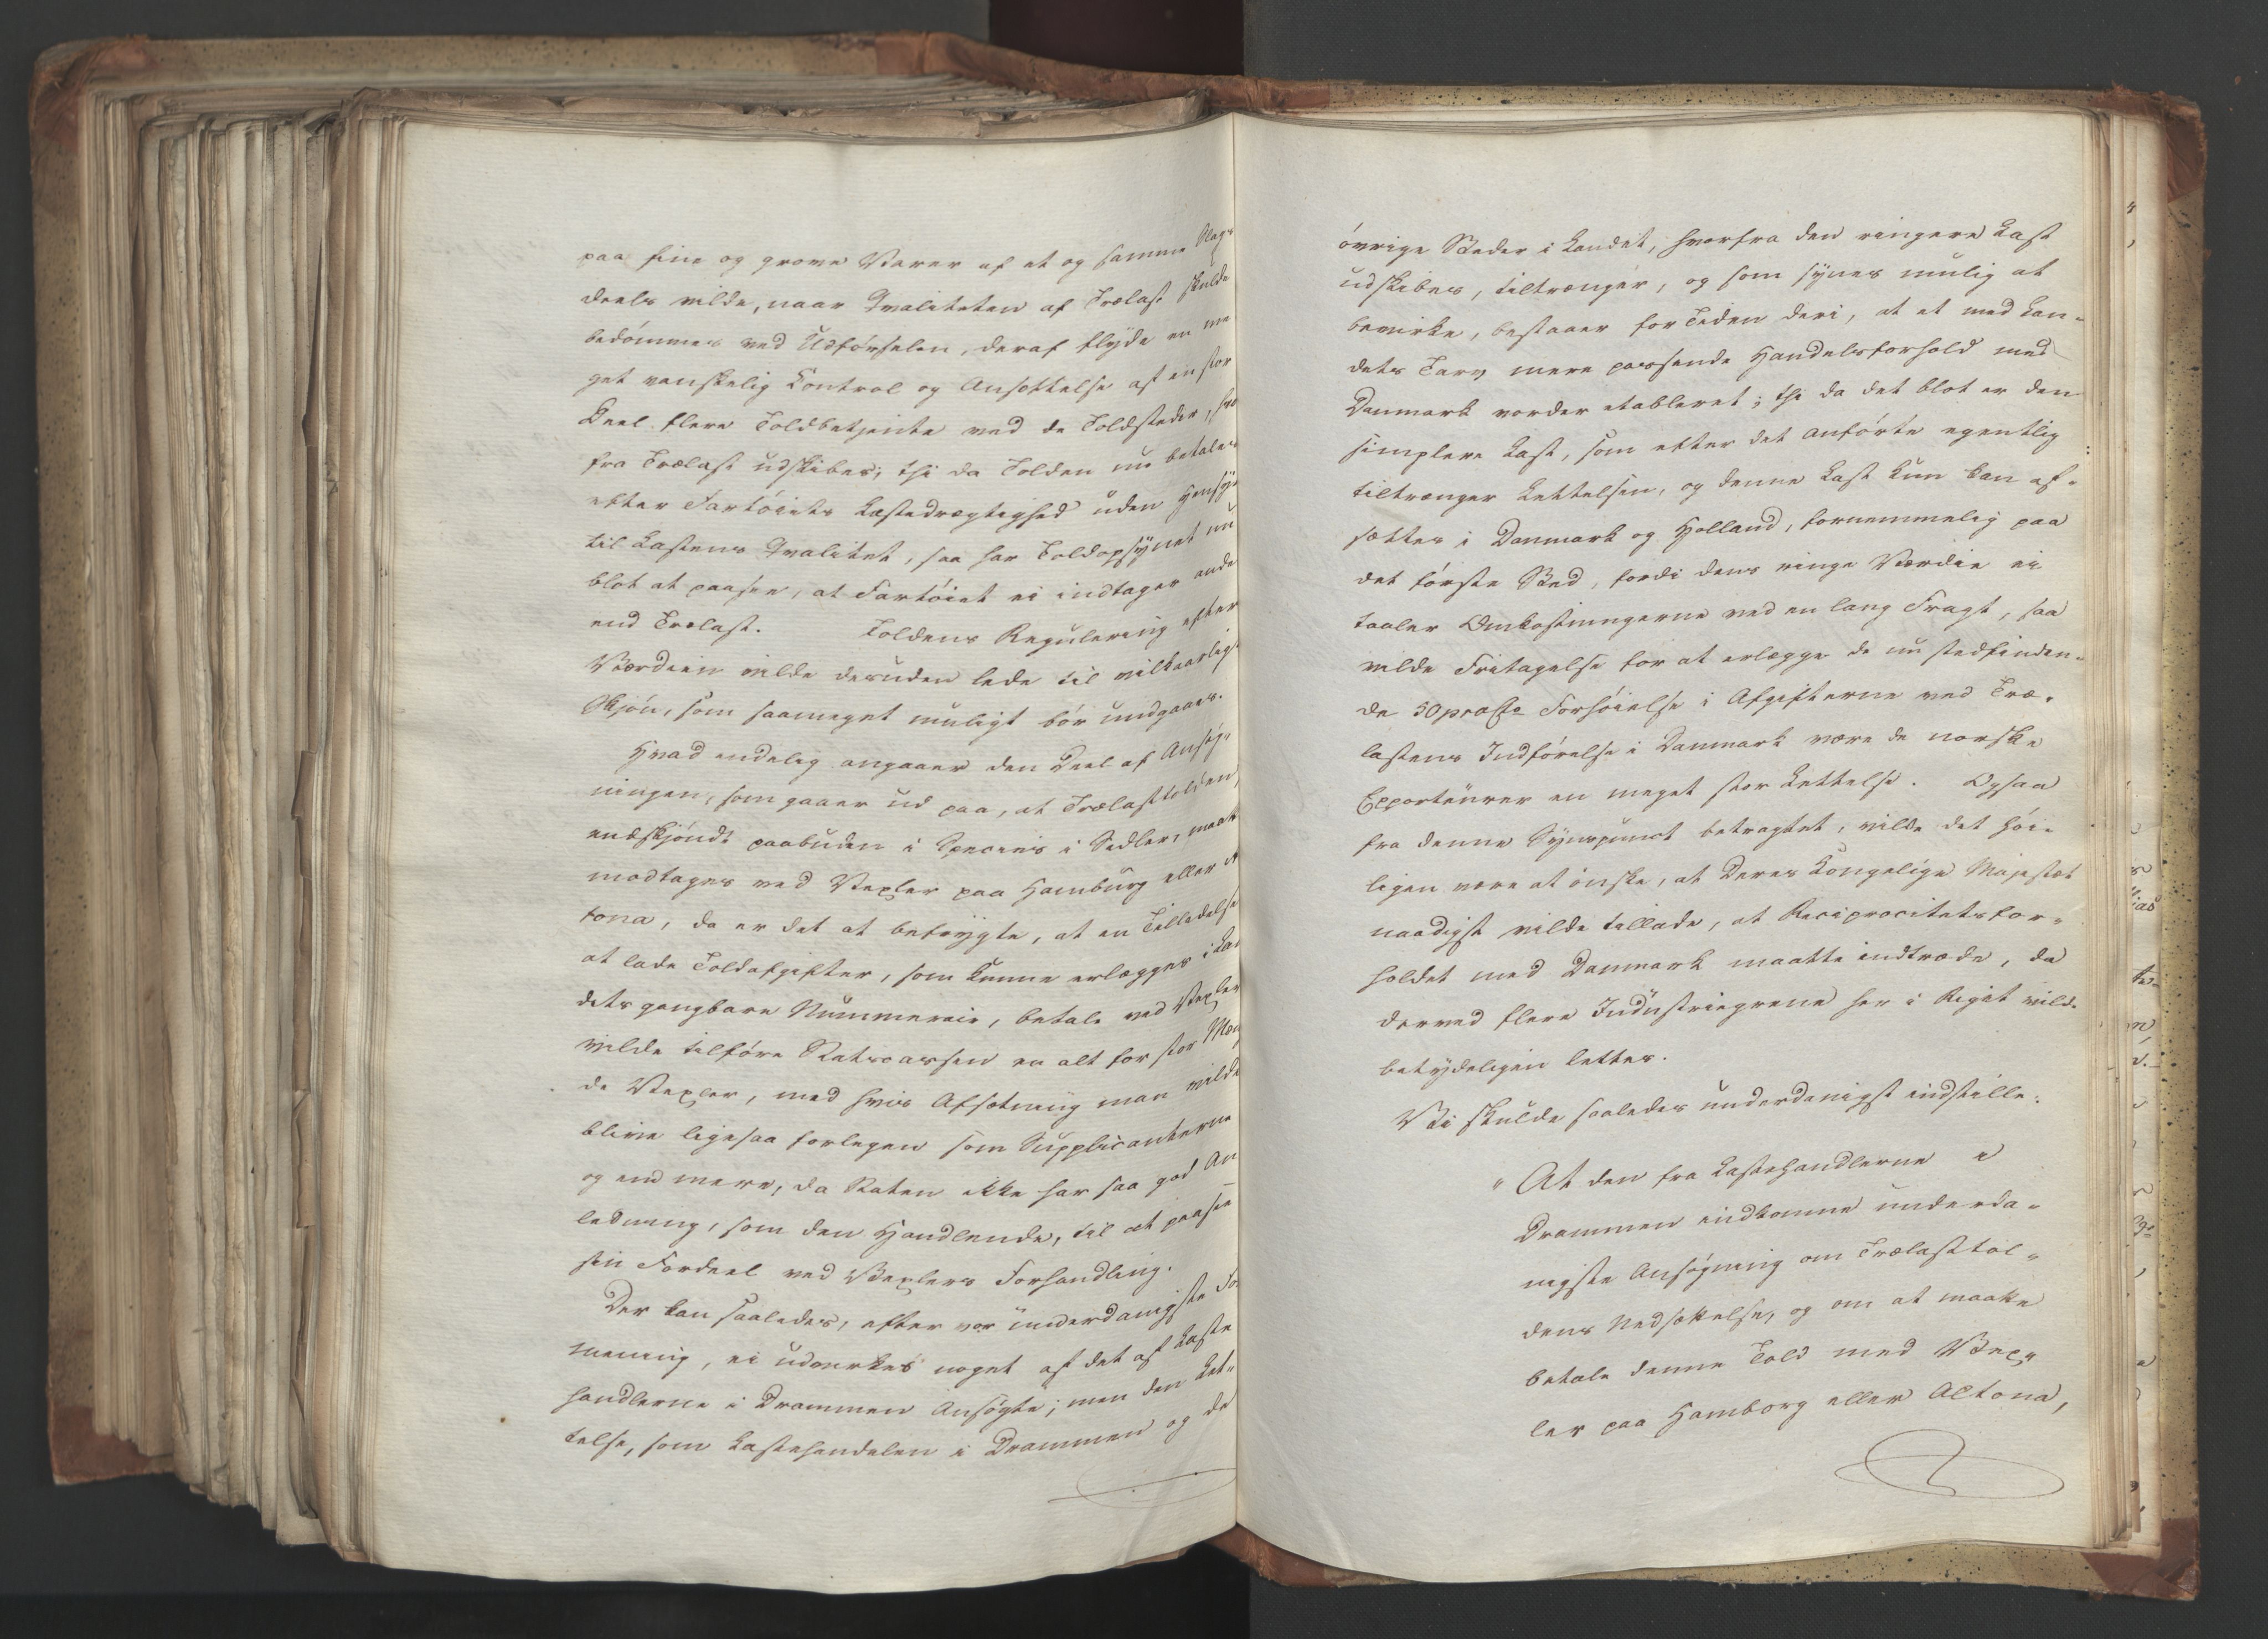 paa fine og grove Varer af et og samme Slags
deels vilde, naar Qvaliteten af Trælast skulde
bedömmes ved Udförselen, deraf flyde en me
get vanskelig Control og Ansættelse af en stor
Deel flere Toldbetjente ved de Toldsteder, hvor
fra Trælast udskibes; thi da Tolden nu betales
efter Fartöiets Læstedrægtighed uden Hensyn
til Lastens Qvalitet, saa har Toldopsynet nu
blot at paasee, at Fartöiet ei indtager andet
end Trælast. Toldens Regulering efter
Værdien vilde desuden lede til vilkaarligt
Skjön, som saameget muligt bör undgaaes.
Hvad endelig angaaer den Deel af Ansög-
ningen, som gaaer ud paa, at Trælasttolden,
endskjöndt paabuden i Species i Sedler, maatte
modtages ved Vexler paa Hamburg eller Al
tona, da er det at befrygte, at en Tilladelse
at lade Toldafgifter, som kunne erlægges i Lan
dets gangbare Nummeraire, betale ved Vexler
vilde tilföre Statscassen en alt for stor Mæng
de Vexler, med hvis Afsætning man vilde
blive ligesaa forlegen som Supplicanterne
og end mere, da Staten ikke har saa god An
ledning, som den Handlende, til at paasee
sin Fordeel ved Vexlers Forhandling.
Der kan saaledes, efter vor underdanigste For
mening, ei udvirkes noget af det af Laste
handlerne i Drammen Ansögte; men den Let-
telse, som Lastehandelen i Drammen og de
övrige Steder i Landet, hvorfra den ringere Last
udskibes, tiltrænger, og som synes mulig at
bevirke, bestaaer for Tiden deri, at et med Lan-
dets Tarv mere passende Handelsforhold med
Danmark vorder etableret; thi da det blot er den
simplere Last, som efter det Anförte egentlig
tiltrænger Lettelsen, og denne Last kun kan af-
sættes i Danmark og Holland, fornemmelig paa
det förste Sted, fordi dens ringe Værdie ei
taaler Omkostningerne ved en lang Fragt, saa
vilde Fritagelse for at erlægge de nu stedfinden-
de 50 procto Forhöielse i Afgifterne ved Træ-
lastens Indförelse i Danmark være de norske
Exporteurer en meget stor Lettelse. Ogsaa
fra denne Synspunct betragtet, vilde det höi-
ligen være at önske, at Deres Kongelige Majestæt
naadigst vilde tillade, at Reciprocitetsfor-
holdet med Danmark maatte indtræde, da
derved flere Industriegrene her i Riget vilde
betydeligen lettes.
Vi skulde saaledes underdanigst indstille:
"At den fra Lastehandlerne i
Drammen indkomne underda-
nigste Ansögning om Trælasttol-
dens Nedsættelse, og om at maatte
betale denne Told med Vex-
ler paa Hamborg eller Altona,